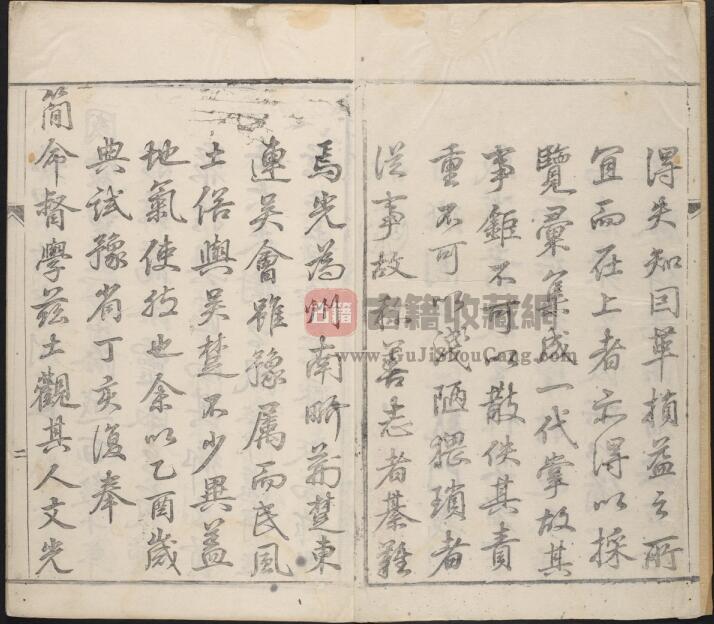 得失知囙革損益之所
宜而在上者亦得以採
覽彙集成一代掌故其
事鉅不可以散佚其責
重不可以淺陋猥瑣者
従事故称善志者綦難
焉光為州南畍荊楚東
連吳會雖豫属而民風
土俗與吳楚不少異盖
地氣使然也余以乙酉歲
典試豫省丁亥復奉
簡命督學茲土觀其人文光
二
古籍
古籍收藏網
www.GuJiShouCang.com